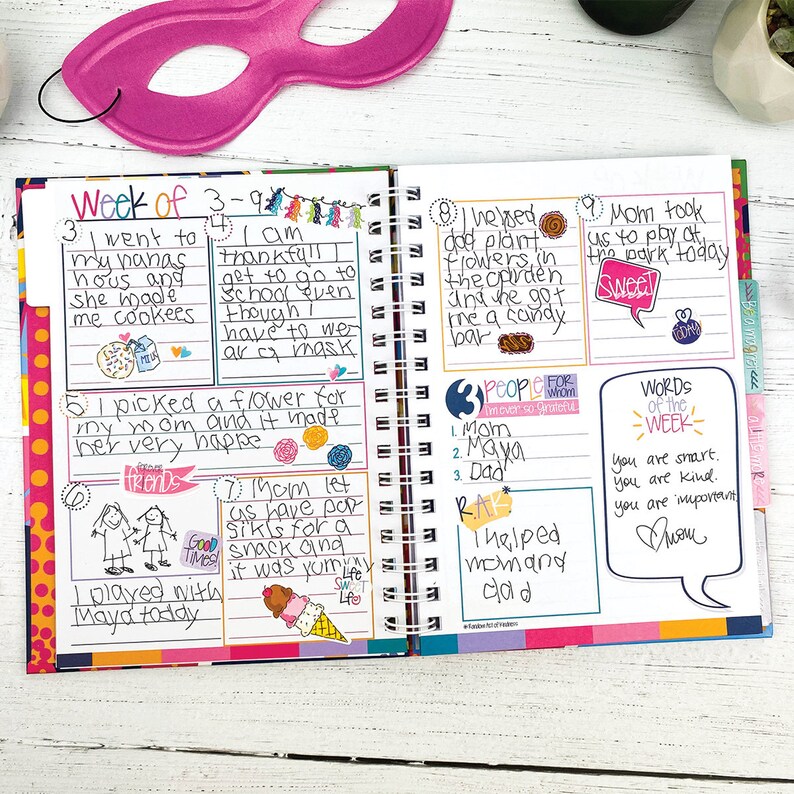 Week of 3-9
3
I went to
my nanas
hous and
she made
me cookees
MILK
4
I am
thankfull I
get to go to
school even
though I
have to we-
ar a mask
5
I picked a flower for
my mom and it made
her very happe
6
forever
FRIENDS
GOOD
TIMES!
I played with
Maya toddy
7
Mom let
us have pop
sikls for a
snack and
it was yummy
Life
SWEET
Life
8
I helped
dad plant
flowers in
the garden
and he got
me a candy
bar
9
Mom took
us to play at
the park today
SWEET
TODAY
3 PEOPLE FOR whom
I'm ever so grateful
1. Mom
2. Maya
3. Dad
R.A.K*
I helped
mom and
dad
* Random Act of Kindness
WORDS
OF the
WEEK
you are smart.
you are kind.
you are important.
mom